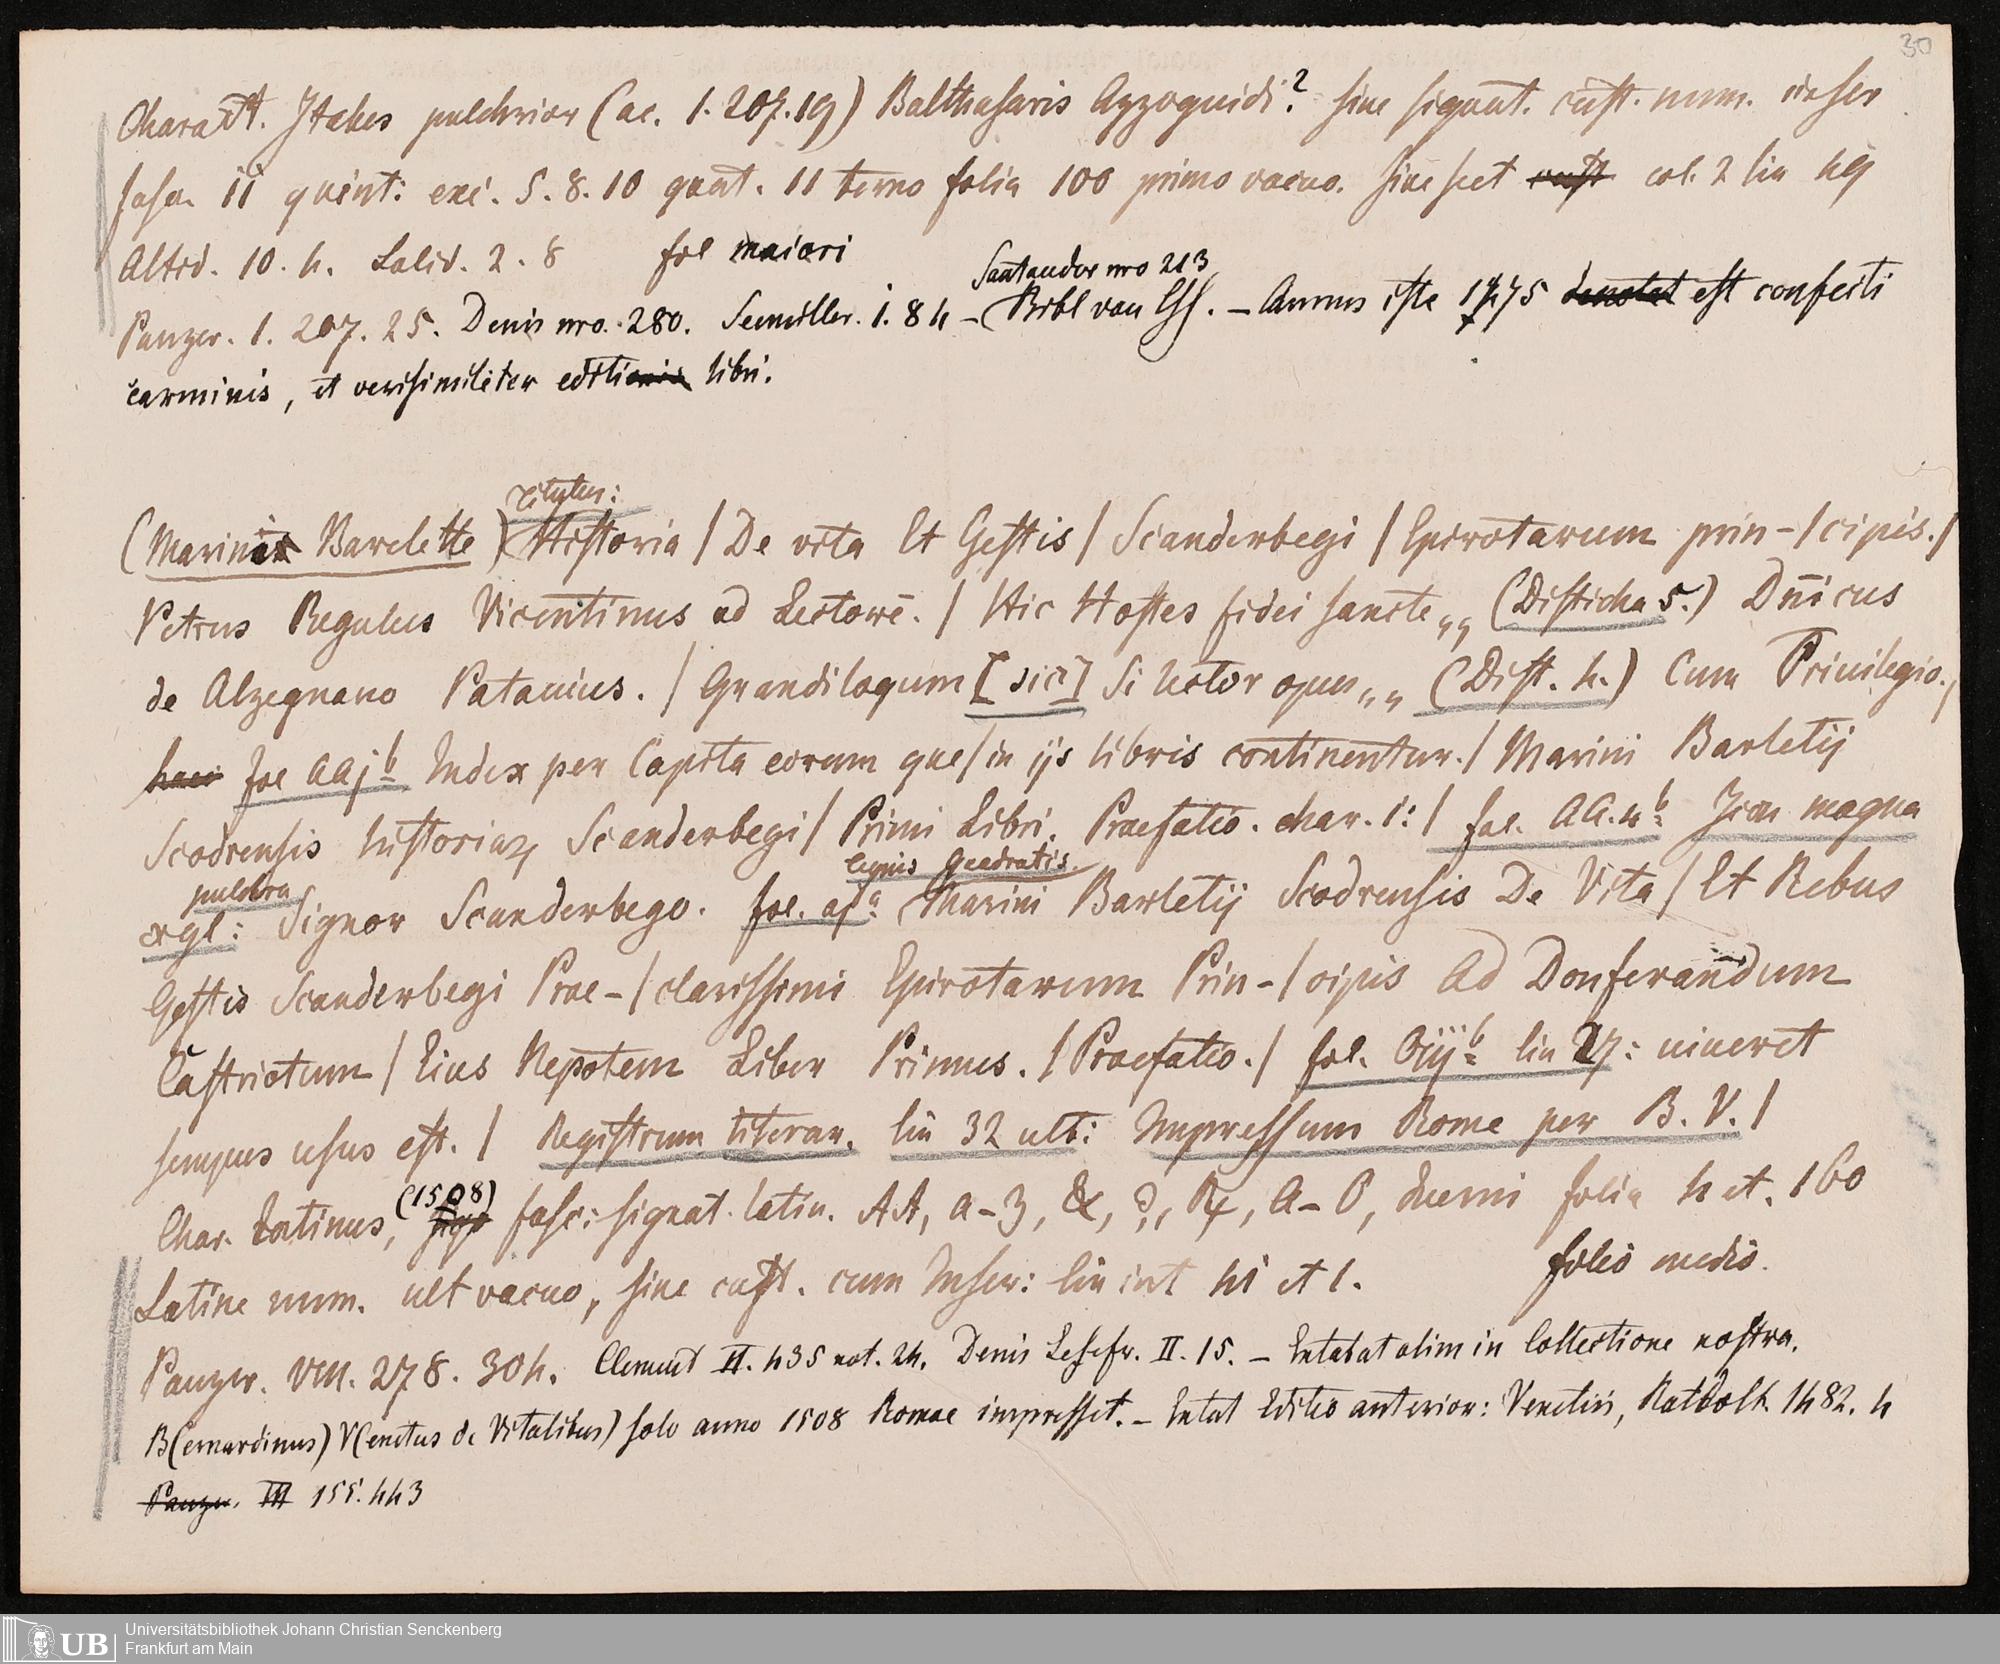 30
Charact. Italus pulchrior (ac. 1. 207.19) Balthasaris Azzoguidi? sine signat. cust. num. inscr
fasc. ii quint: exc. 5. 8. 10 quat. 11 terno folia 100 primo vacuo. sine sect cust col. 2 lin 49
Altid. 10. 4. Latid. 2. 8 fol maiori
Santander nro 213
Panzer. 1. 207. 25. Denis nro. 280. Seemiller. i. 84 – (Bibl van Ess. – Annus iste 1475 denotat est confecti
carminis, et verisimiliter editionis libri.
titulus:
(Marini Barelette) Historia / De vita Et Gestis / Scanderbegi / Epirotarum prin-/cipis./
Petrus Regulus Vicentinus ad Lectorē. / Hic Hostes fidei sancte,, (Disticha 5.) Dñicus
de Alzegnano Patauius. / Grandiloqum [sic] Si lector opus,, (Dist. 4.) Cum Priuilegio./
fol AAjb Index per Capita eorum que/in ijs libris continentur./ Marini Barletij
Scodrensis historiaꝝ Scanderbegi / Primi Libri. Praefatio. char. 1: / fol. AA.4b Icon magna
pulchra lignis Quadratis.
xgl: Signor Scanderbego. fol. aja (Marini Barletij Scodrensis De Vita / Et Rebus
Gestis Scanderbegi Prae-/clarissimi Epirotarum Prin-/cipis Ad Donferandum
Castriotum / Eius Nepotem Liber Primus. / Praefatio. / fol. Oiijb lin 27: uiueret
sempus usus est. / Registrum literar. lin 32 ult: Impressum Rome per B. V. /
(1508)
Char. Latinus, fasc: signat. latin. AA, a–z, &, ꝯ, ꝶ, A–O, duerni folia 4 et. 160
Latine num. ult vacuo, sine cust. cum Inscr: lin int 41 et 1. folio medio.
Panzer. VIII. 278. 304. Clement II. 435 not. 24. Denis Lesefr. II. 15. – Extabat olim in Collectione nostra.
B(ernardinus) V(enetus de Vitalibus) solo anno 1508 Romae impressit. – Extat Editio anterior: Venetiis, Ratdolt. 1482. 4
Panzer. III 155. 443
UB Universitätsbibliothek Johann Christian Senckenberg
Frankfurt am Main